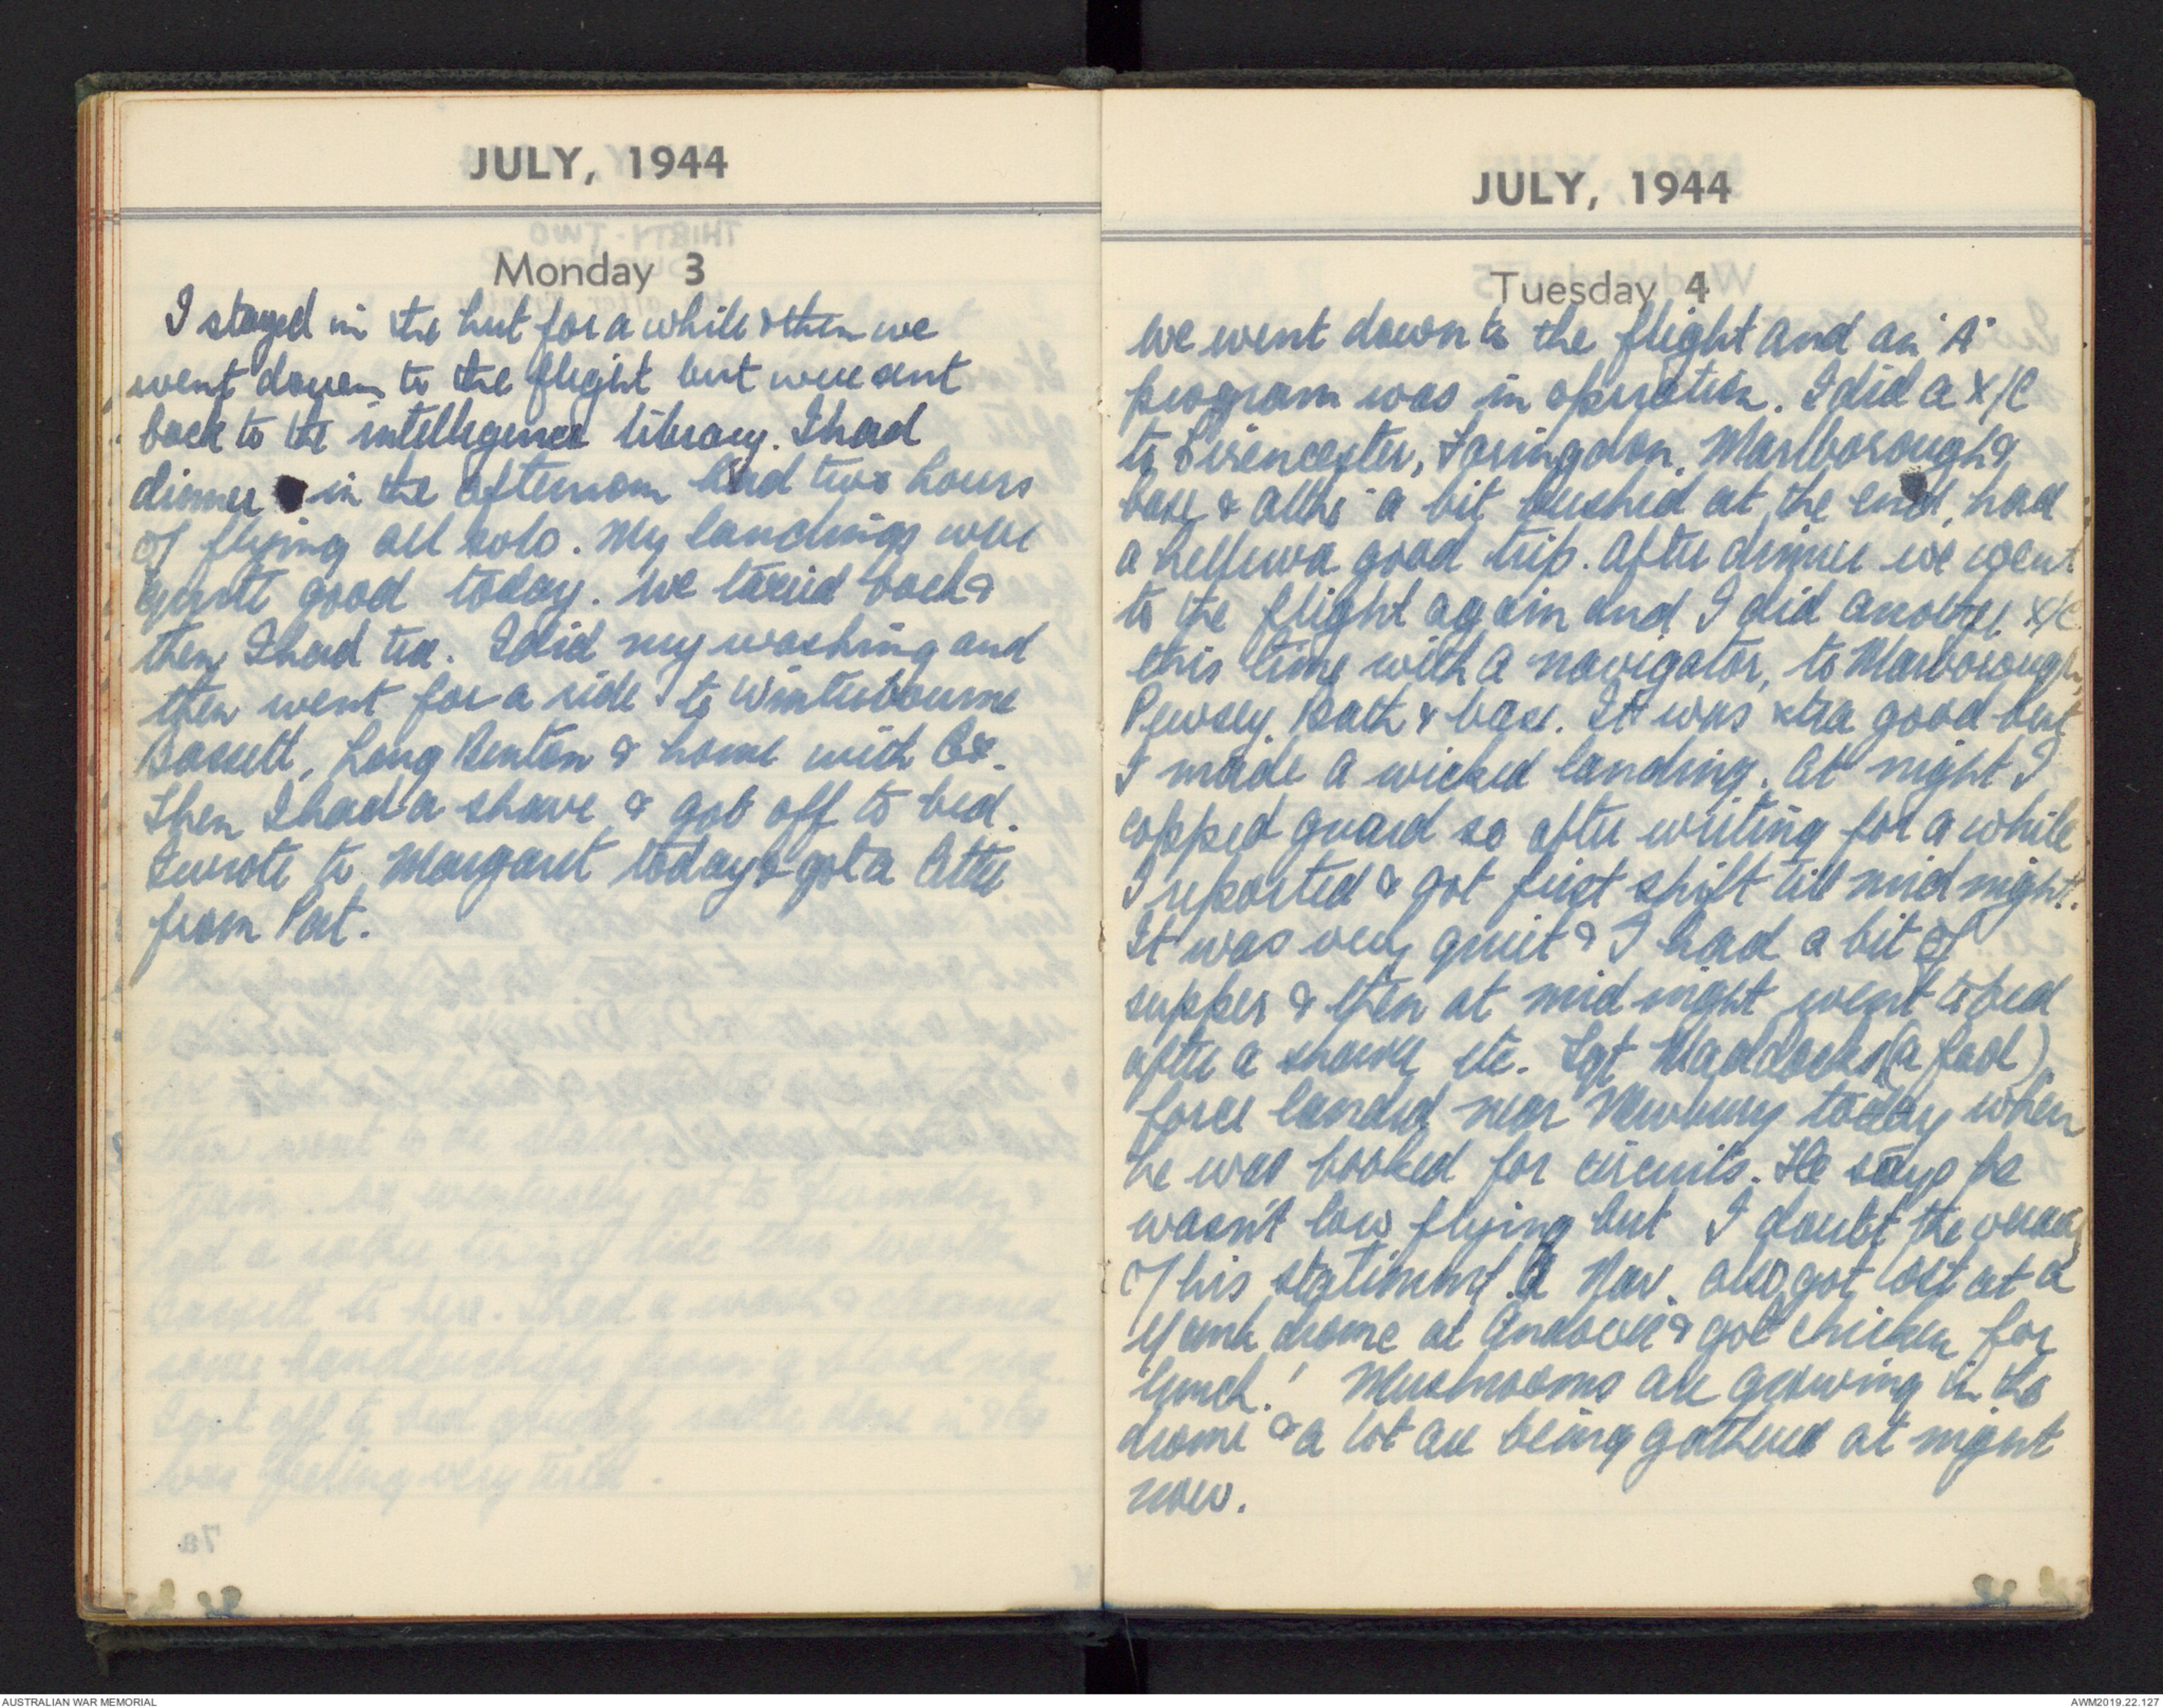 JULY, 1944
Monday 3
I stayed in the hut for a while & then we
went down to the flight but were sent
back to the intelligence library. I had
dinner in the afternoon had two hours
of flying all solo. My landings were
quite good today. We taxied back &
then I had tea. I did my washing and
then went for a ride to Winterbourne
Bassett, Long Benton & home with
Then I had a shave & got off to bed.
I wrote to Margaret today & got a letter
from Pat.
JULY, 1944
Tuesday 4
We went down to the flight and an "A"
program was in operation. I did a X/C
to Sirencester, Faringdon, Marlborough &
base & altho' a bit bushed at the end, had
a helluva good trip. After dinner we went
to the flight again and I did another X/C
this time with a navigator, to Marborough,
Pewsey, Bath & base. It was xtra good but
I made a wicked landing. At night I
copped guard so after writing for a while
I reported & got first shift till midnight.
It was very quiet & I had a bit of
supper & then at midnight went to bed
after a shower etc. Sgt Maddocks (a fool)
force landed near Newbury today when
he was booked for circuits. He says he
wasn't low flying but I doubt the veracity
of his statement. A Nav. also got lost at a
Yank drome at Andover & got chicken for
lunch! Mushrooms are growing in the
drome & a lot are being gathered at night
now.
AUSTRALIAN WAR MEMORIAL
AWM2019.22.127